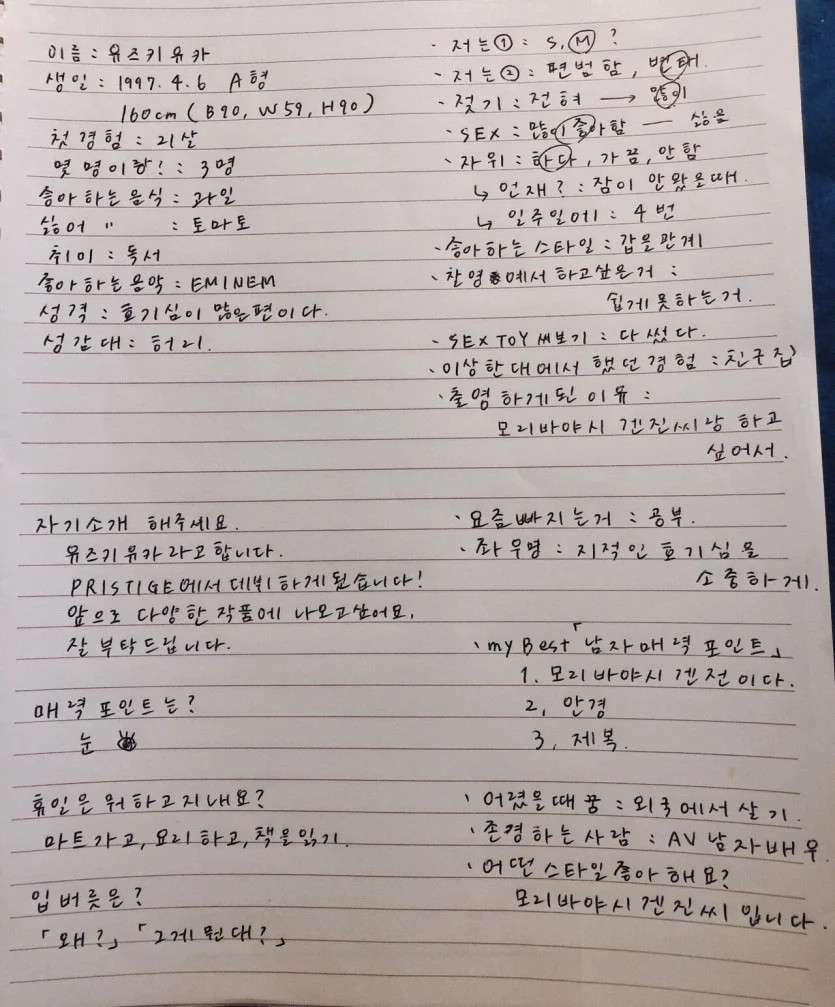 이름 : 유즈키유카
생일 : 1997. 4. 6 A형
160cm (B90, W59, H90)
첫경험 : 21살
몇 명이랑? : 3명
승아하는 음식 : 과일
싫어 〃 : 토마토
취미 : 독서
좋아하는 음악 : EMINEM
성격 : 호기심이 많은편이다.
성감대 : 허리.
· 저는① : S, M ?
· 저는② : 편범함, 변태.
· 젖기 : 전혀 → 많이
· SEX : 많이 좋아함 — 싫음
· 자위 : 하다, 가끔, 안함
↳ 언재? : 잠이 안 왔을때.
↳ 일주일에 : 4번
· 승아하는 스타일 : 갑을관계
· 촬영 에서 하고싶은거 :
쉽게 못하는거.
· SEX TOY 써보기 : 다 썼다.
· 이상한 대에서 했던 경험 : 친구집
· 촬영하게된 이유 :
모리바야시 겐진씨랑 하고
싶어서.
자기소개 해주세요.
유즈키유카라고합니다.
PRISTIGE에서 데뷔하게됬습니다!
앞으로 다양한 작품에 나오고싶어요.
잘 부탁드립니다.
매력 포인트는?
눈
휴일은 뭐하고지내요?
마트가고, 요리하고, 책을읽기.
입버릇은?
「왜?」 「그게 뭔대?」
· 요즘 빠지는거 : 공부.
· 좌우명 : 지적인 호기심을
소중하게.
· my Best 「남자매력 포인트」
1. 모리바야시 겐전이다.
2, 안경
3, 제복.
· 어렸을때 꿈 : 외국에서 살기.
· 존경하는 사람 : AV 남자배우.
· 어떤 스타일 좋아해요?
모리바야시 겐진씨 입니다.